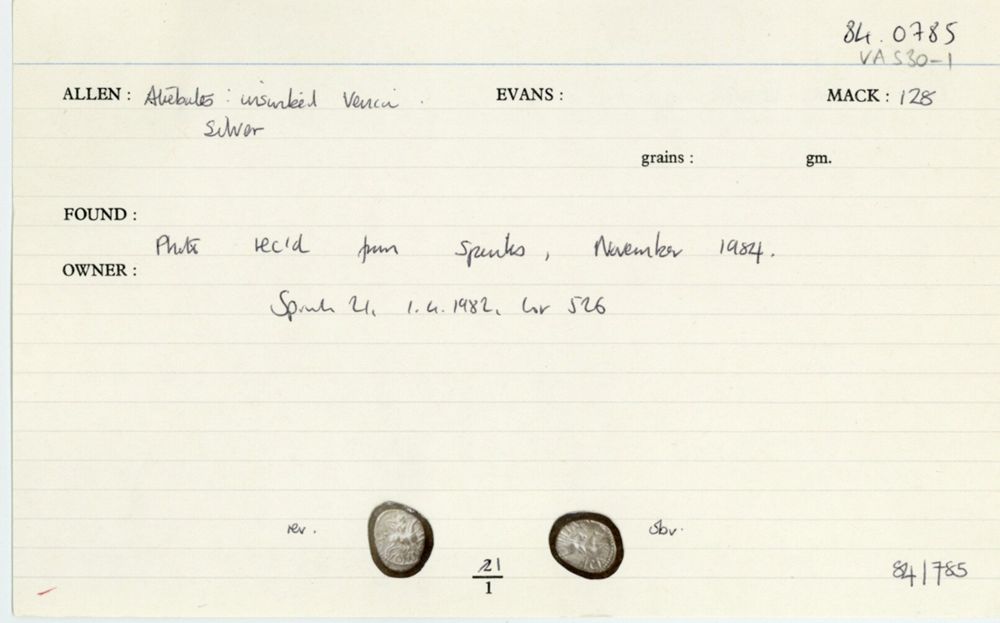 84.0785
VA 530-1
ALLEN : Atrebates : inscribed Verica . EVANS : MACK : 128
Silver
grains : gm.
FOUND :
Photo rec'd from Spinks, November 1984.
OWNER :
Spink 21, 1.4.1982, lot 526
rev. obv.
21
1
84/785